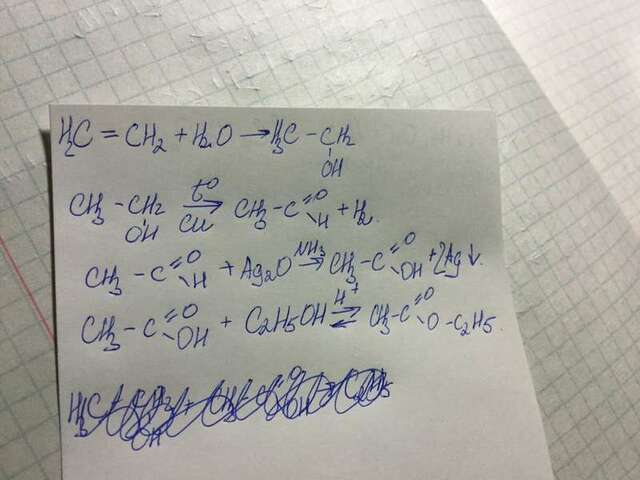 H₂C = CH₂ + H₂O → H₃C - CH₂ OH
CH₃ - CH₂ OH t° Cu → CH₃ - C =O -H + H₂.
CH₃ - C =O -H + Ag₂O NH₃ → CH₃ - C =O -OH + 2Ag↓.
CH₃ - C =O -OH + C₂H₅OH H⁺ ⇌ CH₃ - C =O -O - C₂H₅.